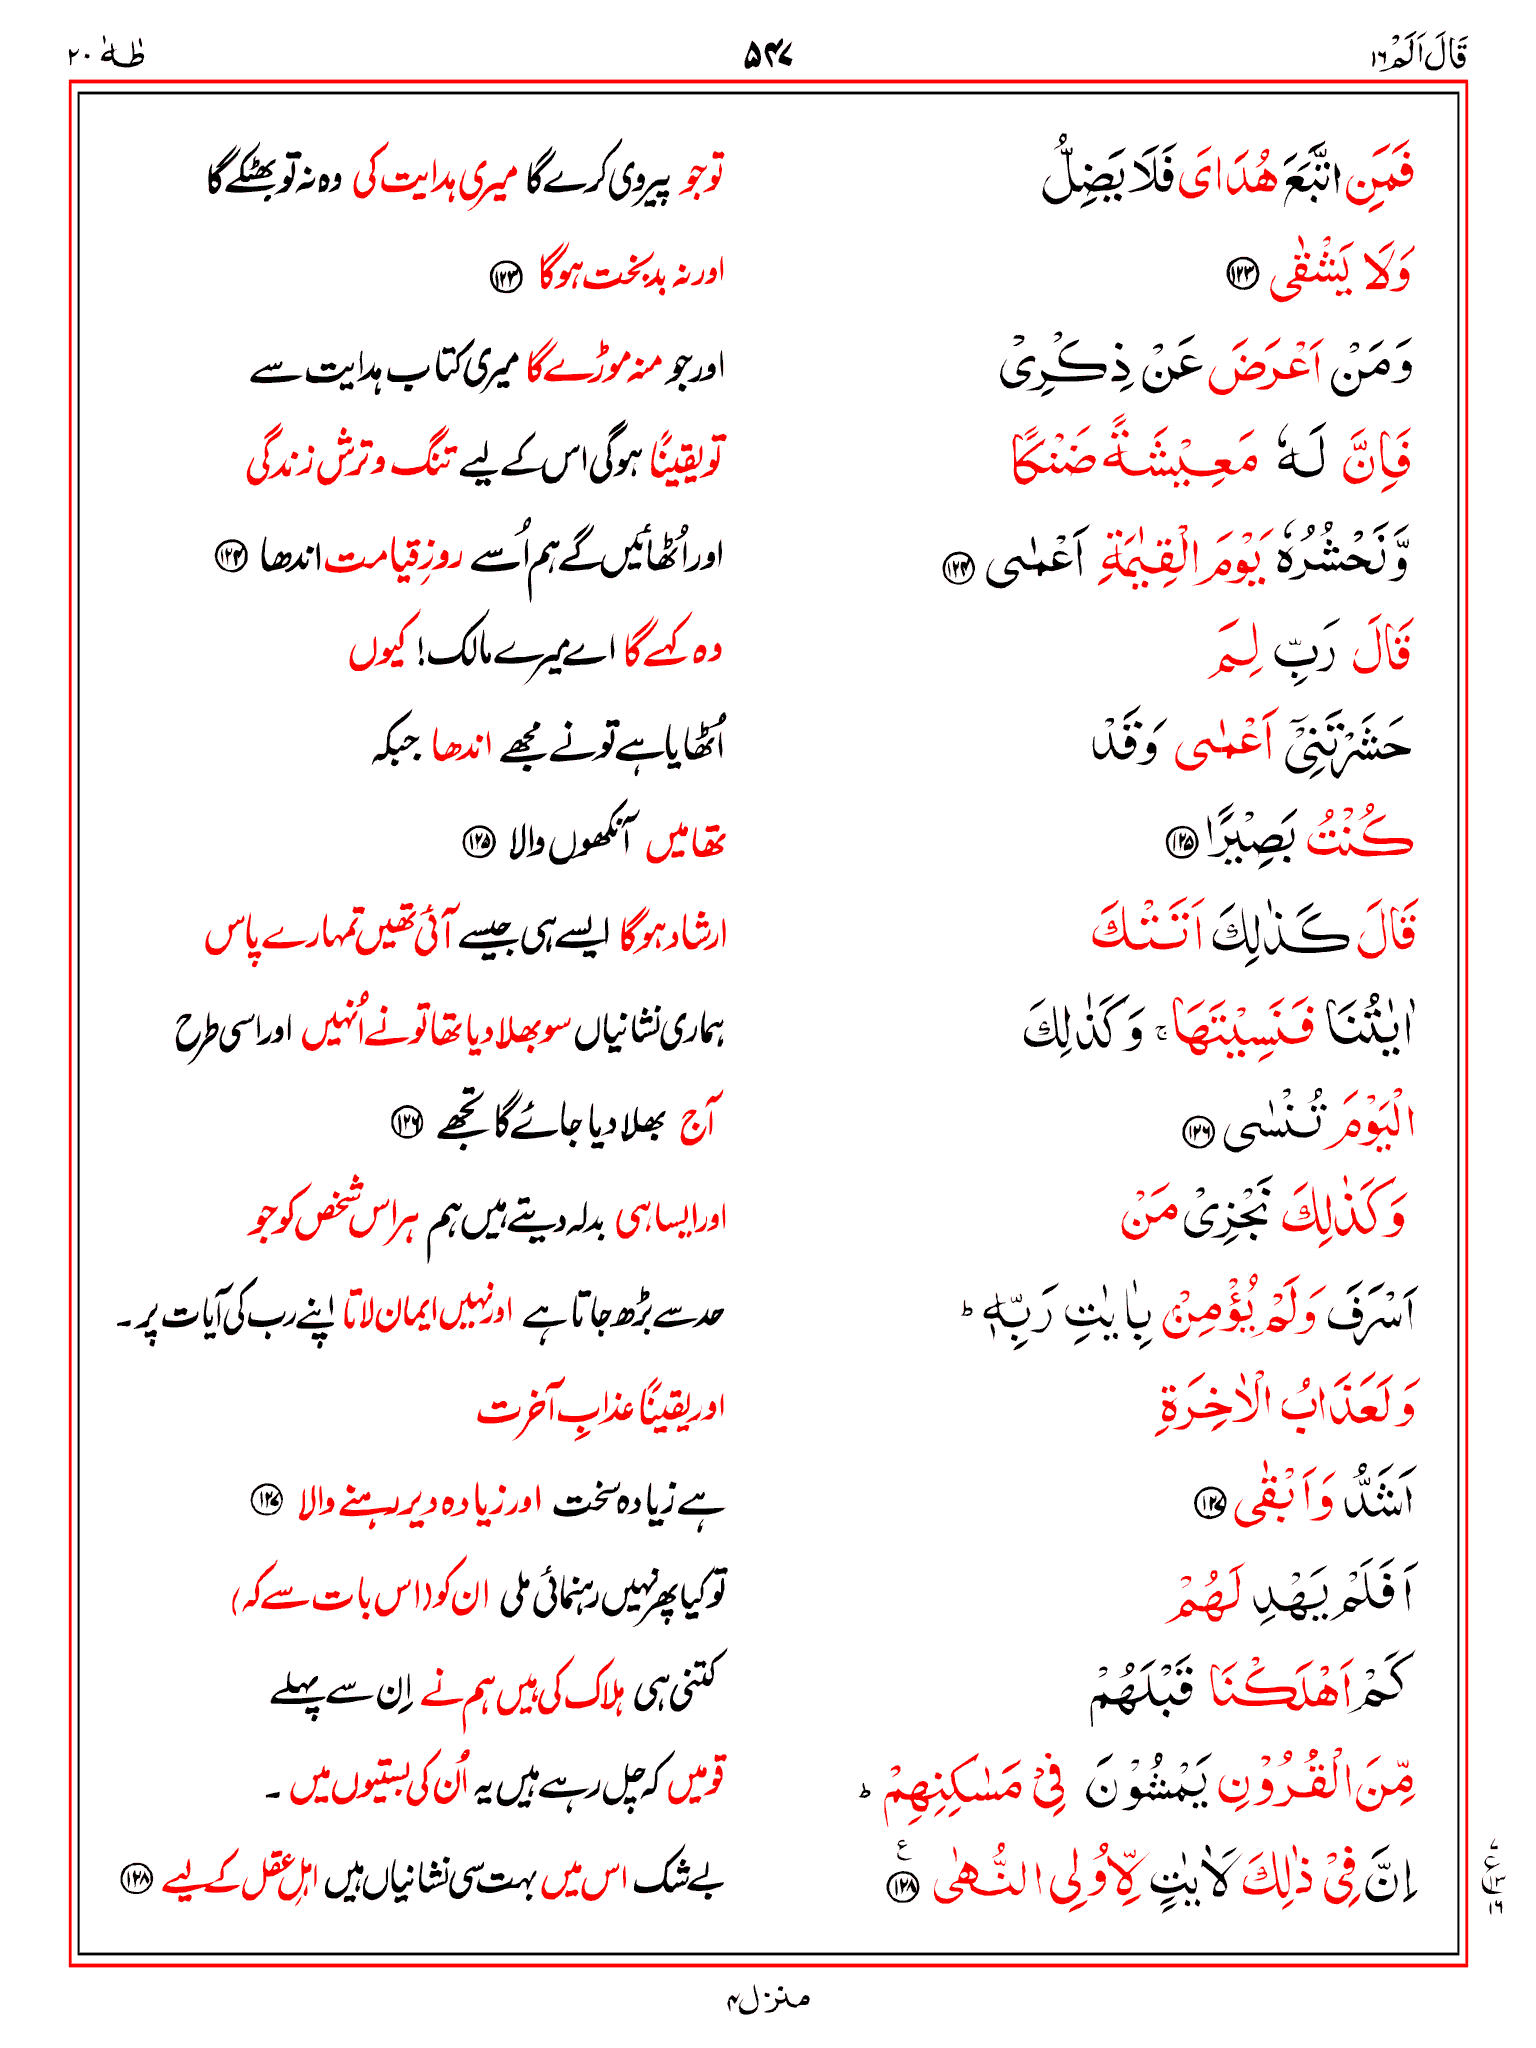 قَالَ اَلَمْ ۱۶ ۵۴۷ طٰهٰ ۲۰
فَمَنِ اتَّبَعَ هُدَایَ فَلَا یَضِلُّ توجو پیروی کرے گا میری ہدایت کی وہ نہ تو بھٹکے گا
وَلَا یَشْقٰی ﴿۱۲۳﴾ اور نہ بدبخت ہوگا ﴿۱۲۳﴾
وَمَنْ اَعْرَضَ عَنْ ذِكْرِیْ اور جو منہ موڑے گا میری کتاب ہدایت سے
فَاِنَّ لَهٗ مَعِیْشَةً ضَنْكًا تو یقینًا ہوگی اس کے لیے تنگ و ترش زندگی
وَّنَحْشُرُهٗ یَوْمَ الْقِیٰمَةِ اَعْمٰی ﴿۱۲۴﴾ اور اُٹھائیں گے ہم اُسے روزِ قیامت اندھا ﴿۱۲۴﴾
قَالَ رَبِّ لِمَ وہ کہے گا اے میرے مالک! کیوں
حَشَرْتَنِیْۤ اَعْمٰی وَقَدْ اُٹھایا ہے تو نے مجھے اندھا جبکہ
كُنْتُ بَصِیْرًا ﴿۱۲۵﴾ تھا میں آنکھوں والا ﴿۱۲۵﴾
قَالَ كَذٰلِكَ اَتَتْكَ ارشاد ہوگا ایسے ہی جیسے آئی تھیں تمہارے پاس
اٰیٰتُنَا فَنَسِیْتَهَا ۚ وَكَذٰلِكَ ہماری نشانیاں سو بھلا دیا تھا تو نے اُنہیں اور اسی طرح
الْیَوْمَ تُنْسٰی ﴿۱۲۶﴾ آج بھلا دیا جائے گا تجھے ﴿۱۲۶﴾
وَكَذٰلِكَ نَجْزِیْ مَنْ اور ایسا ہی بدلہ دیتے ہیں ہم ہر اس شخص کو جو
اَسْرَفَ وَلَمْ یُؤْمِنْۢ بِاٰیٰتِ رَبِّهٖ ؕ حد سے بڑھ جاتا ہے اور نہیں ایمان لاتا اپنے رب کی آیات پر۔
وَلَعَذَابُ الْاٰخِرَةِ اور یقینًا عذابِ آخرت
اَشَدُّ وَاَبْقٰی ﴿۱۲۷﴾ ہے زیادہ سخت اور زیادہ دیر رہنے والا ﴿۱۲۷﴾
اَفَلَمْ یَهْدِ لَهُمْ تو کیا پھر نہیں رہنمائی ملی ان کو (اس بات سے کہ)
كَمْ اَهْلَكْنَا قَبْلَهُمْ کتنی ہی ہلاک کی ہیں ہم نے اِن سے پہلے
مِّنَ الْقُرُوْنِ یَمْشُوْنَ فِیْ مَسٰكِنِهِمْ ؕ قومیں کہ چل رہے ہیں یہ اُن کی بستیوں میں۔
اِنَّ فِیْ ذٰلِكَ لَاٰیٰتٍ لِّاُولِی النُّهٰی ﴿۱۲۸﴾ ع بے شک اس میں بہت سی نشانیاں ہیں اہلِ عقل کے لیے ﴿۱۲۸﴾
۷
ع ۱۳
۱۶
منزل ۴